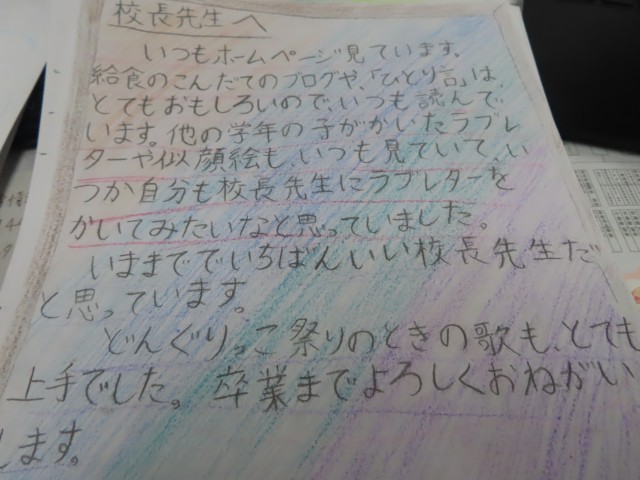 校長先生へ
いつもホームページ見ています。
給食のこんだてのブログや、「ひとり言」は、
とてもおもしろいので、いつも読んで
います。他の学年の子がかいたラブレ
ターや似顔絵も いつも見ていて、い
つか自分も校長先生にラブレターを
かいてみたいなと思っていました。
いままででいちばんいい校長先生だ
と思っています。
どんぐりっこ祭りのときの歌も、とても
上手でした。卒業までよろしくおねがい
します。